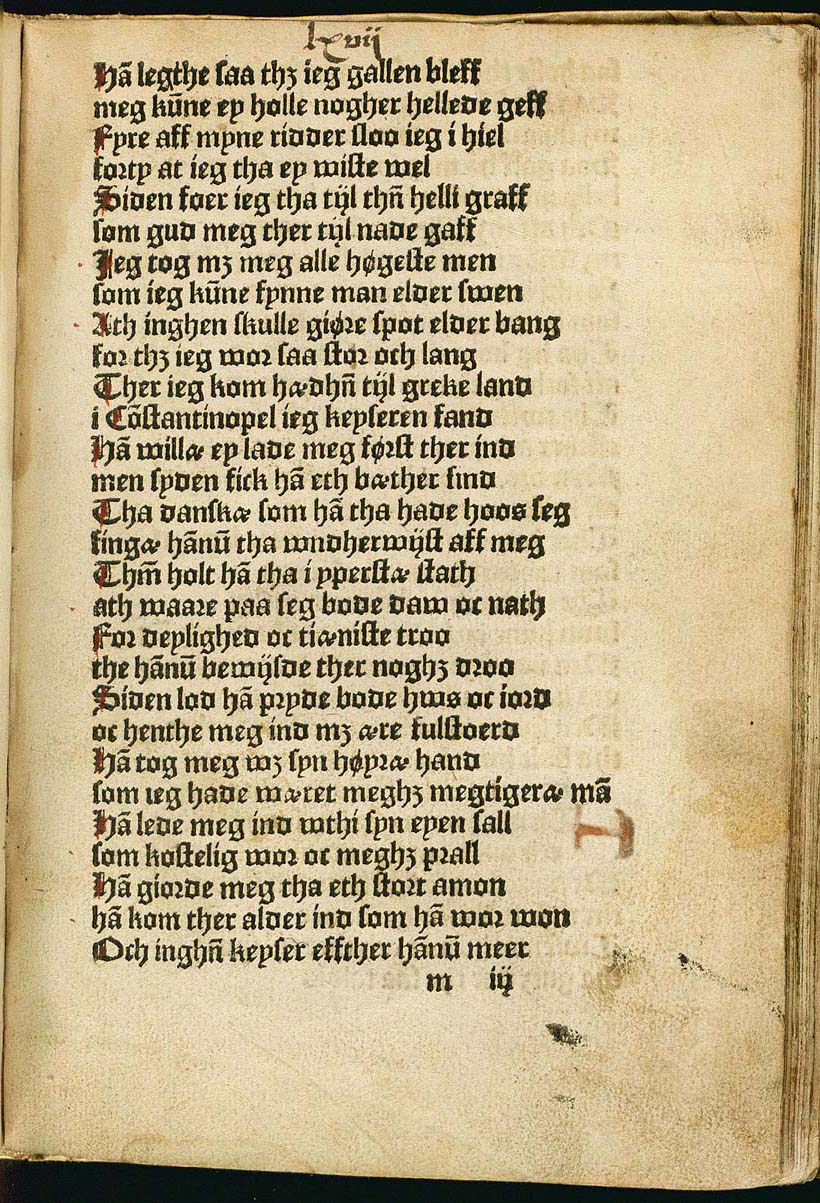 lxvij
Hā legthe saa thꝫ ieg gallen bleff
meg kūne ey holle nogher hellede geff
Fyre aff myne ridder sloo ieg i hiel
forty at ieg tha ey wiste wel
Siden foer ieg tha tijl thn̄ helli graff
som gud meg ther tijl nade gaff
Jeg tog mꝫ meg alle høgeste men
som ieg kūne fynne man elder swen
Ath inghen skulle giøre spot elder bang
for thꝫ ieg wor saa stor och lang
Ther ieg kom hædhn̄ tijl greke land
i Cōstantinopel ieg keyseren fand
Hā willæ ey lade meg først ther ind
men syden fick hā eth bæther sind
Tha danskæ som hā tha hade hoos seg
fingæ hānū tha wndherwijst aff meg
Thm̄ holt hā tha i yperstæ stath
ath waare paa seg bode daw oc nath
For deylighed oc tiæniste troo
the hānū bewijsde ther noghꝫ droo
Siden lod hā pryde bode hws oc iord
oc henthe meg ind mꝫ ære fulstoerd
Hā tog meg wꝫ syn høyræ hand
som ieg hade wæret meghꝫ megtigeræ mā
Hā lede meg ind wthi syn eyen sall
som kostelig wor oc meghꝫ prall
Hā giorde meg tha eth stort amon
hā kom ther alder ind som hā wor won
Och inghn̄ keyser effther hānū meer
m iij